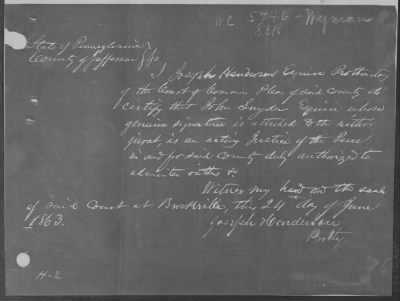 WC 5746 - Wyman
State of Pennsylvania
County of Jefferson
I Joseph Henderson Esquire Prothonotary
of the Court of Common Pleas of said County do
certify that John Snyder Esquire whose
genuine signature is attached to the within
jurat, is an acting Justice of the Peace
in and for said County duly authorized to
administer oaths &c
Witness my hand and the seal
of said Court at Brookville, this 24 day of June
1863.
Joseph Henderson
Prothy
H-2